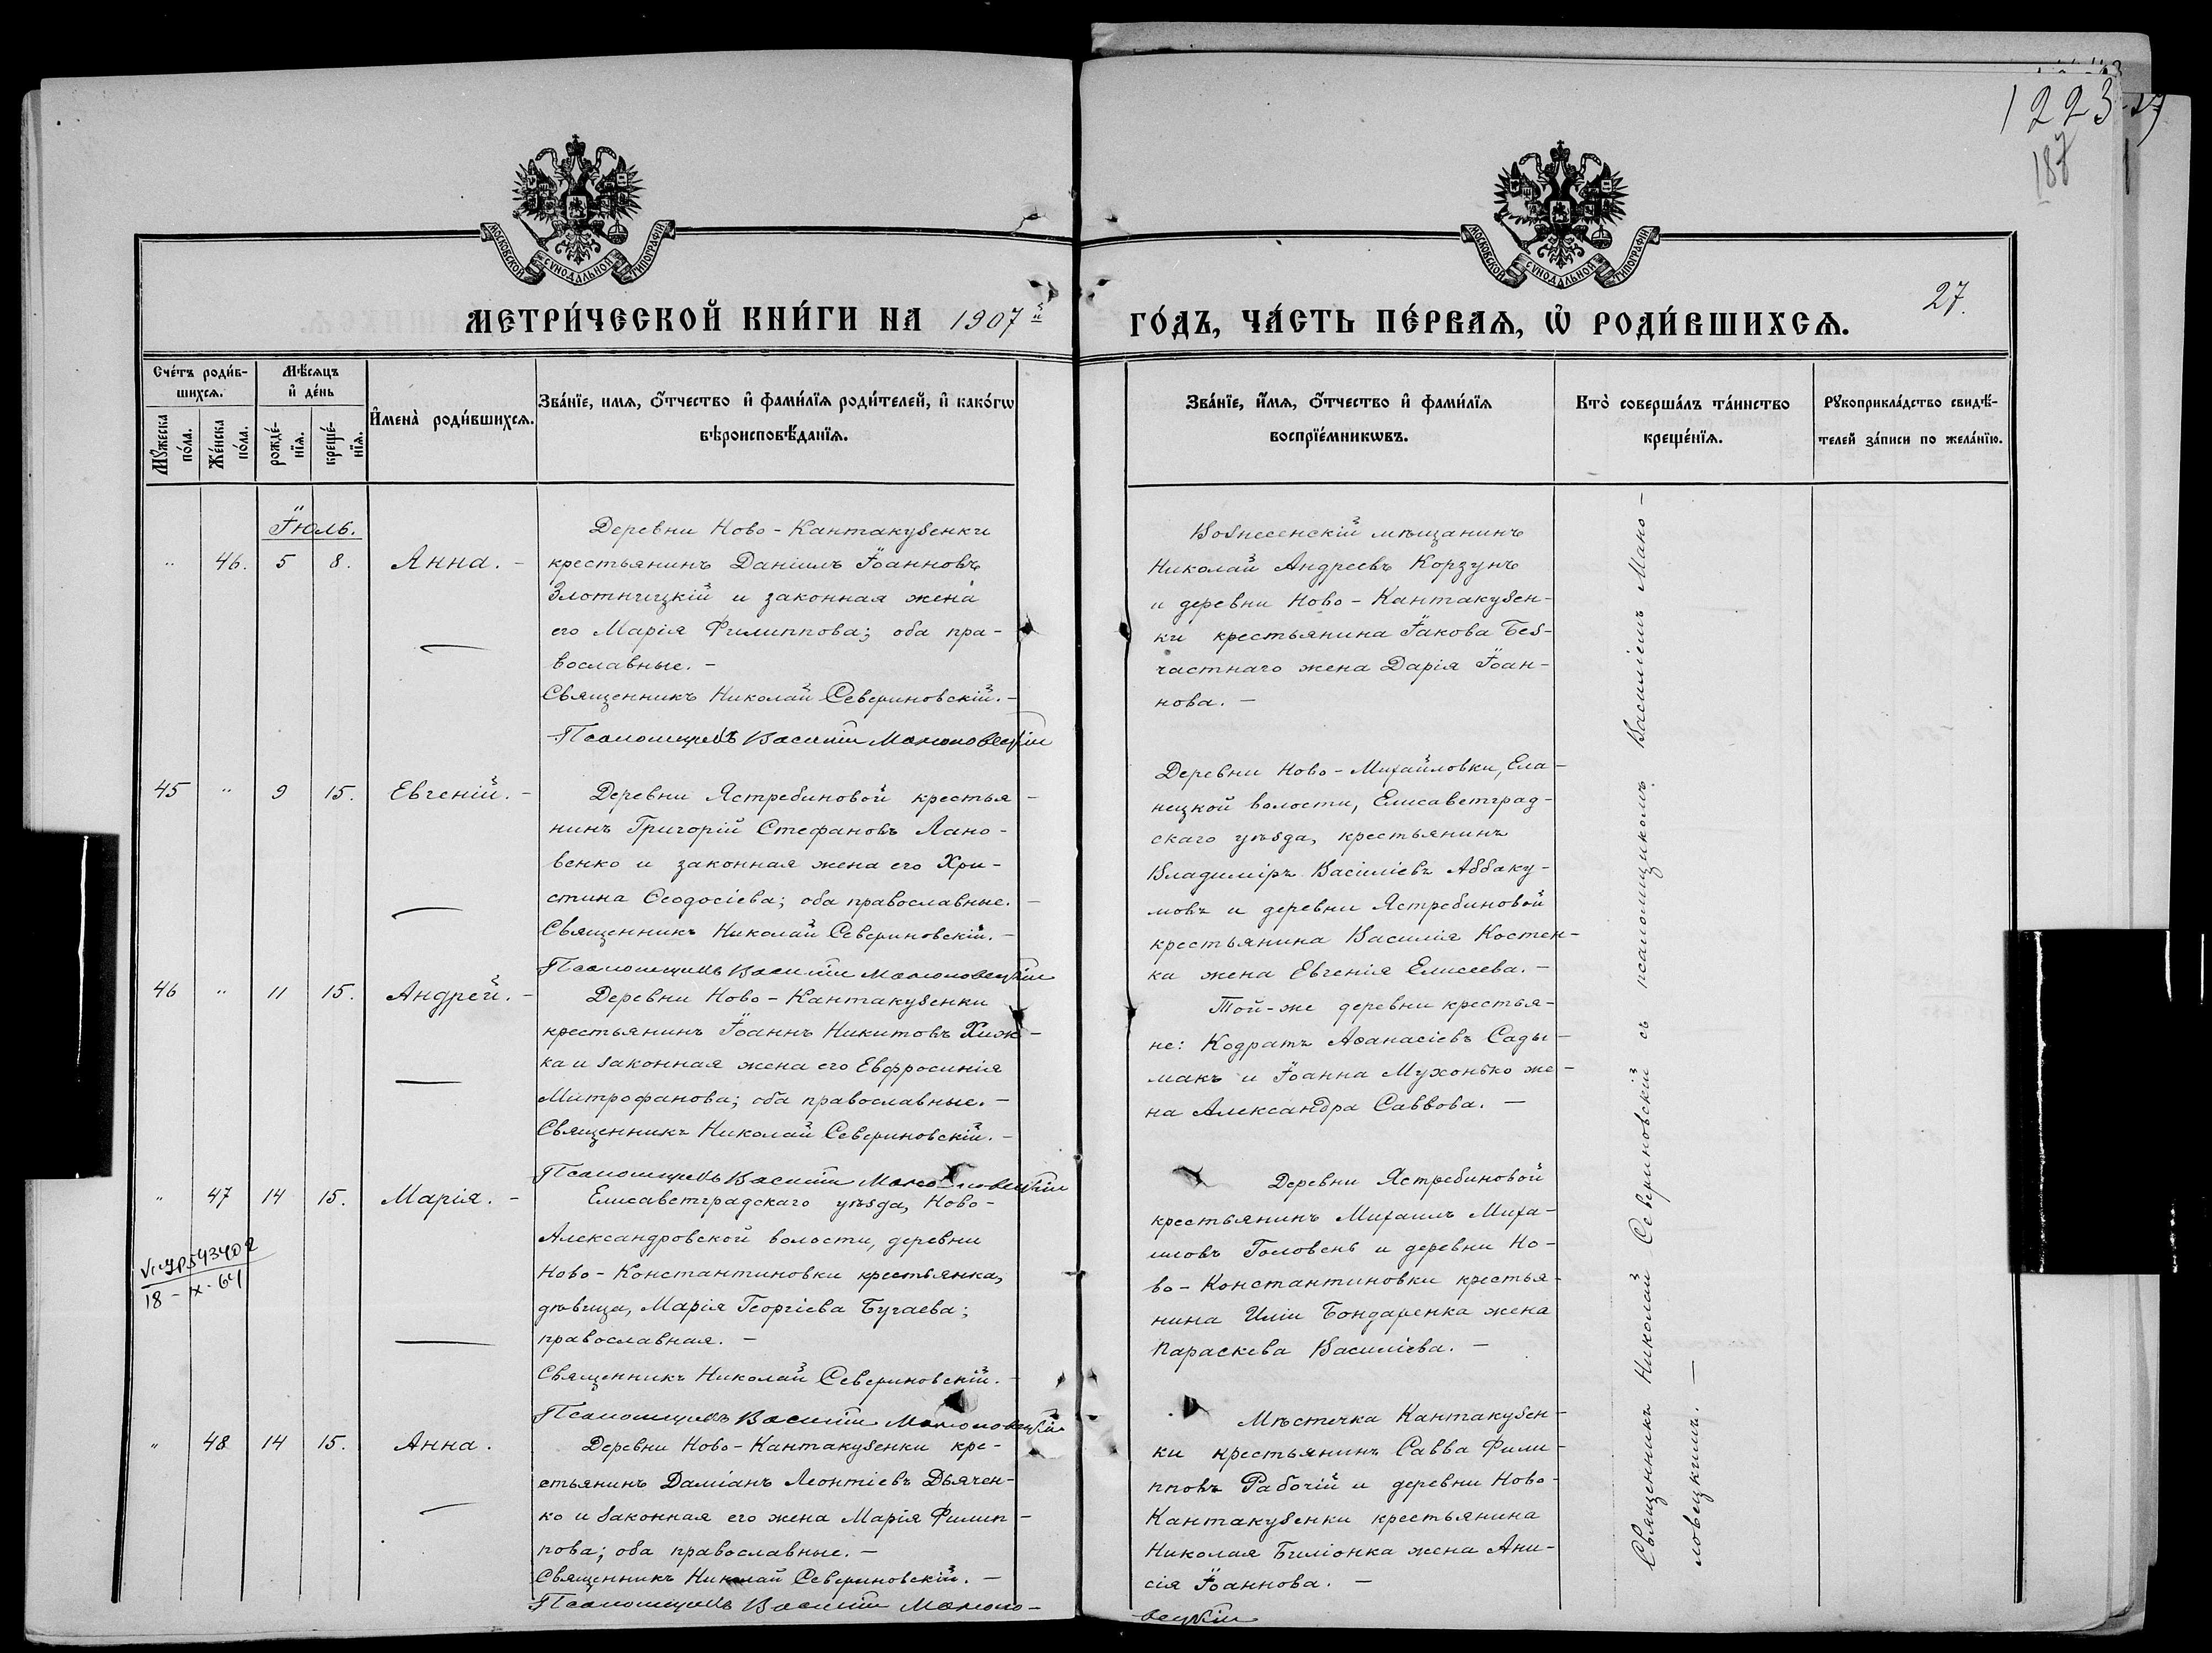 1223
187
МОСКОВСКОЙ СУНОДАЛЬНОЙ ТИПОГРАФІИ
МОСКОВСКОЙ СУНОДАЛЬНОЙ ТИПОГРАФІИ
МЕТРИ́ЧЕСКОЙ КНИ́ГИ НА 1907й
ГО́ДЪ, ЧА́СТЬ ПЕ́РВАѦ, Ѡ҆ РОДИ́ВШИХСѦ.
27.
Сче́тъ роди́в-
шихсѧ.
Мꙋжеска
по́ла.
Же́нска
по́ла.
Мѣ́сѧцъ
и҆ де́нь
рожде́-
нїѧ.
креще́-
нїѧ.
И҆мена̀ роди́вшихсѧ.
Зва́нїе, имѧ, ѻ҆́тчество и҆ фами́лїѧ роди́телей, и҆ како́гѡ
вѣроисповѣ́данїѧ.
Зва́нїе, и҆́мѧ, ѻ҆́тчество и҆ фами́лїѧ
воспрїе́мникѡвъ.
Кто̀ соверша́лъ та́инство
креще́нїѧ.
Рꙋкоприкла́дство свидѣ́-
телей за́писи по жела́нїю.
Іюль.
" 46. 5 8. Анна. -
Деревни Ново-Кантакузенки
крестьянинъ Даніилъ Іоанновъ
Злотницкій и законная жена
его Марія Филиппова; оба пра-
вославные. -
Священникъ Николай Севериновскій. -
Псаломщикъ Василій Маноловецкій
Вознесенскій мѣщанинъ
Николай Андреевъ Корзунъ
и деревни Ново-Кантакузен-
ки крестьянина Іакова Без-
частнаго жена Дарія Іоан-
нова. -
45 " 9 15. Евгеній. -
Деревни Ястребиновой крестья-
нинъ Григорій Стефановъ Лано-
венко и законная жена его Хри-
стина Ѳеодосіева; оба православные. -
Священникъ Николай Севериновскій. -
Псаломщикъ Василій Маноловецкій
Деревни Ново-Михайловки, Ела-
нецкой волости, Елисаветград-
скаго уѣзда, крестьянинъ
Владиміръ Василіевъ Аввaку-
мовъ и деревни Ястребиновой
крестьянина Василія Костен-
ка жена Евгенія Елисеева. -
46 " 11 15. Андрей. -
Деревни Ново-Кантакузенки
крестьянинъ Іоаннъ Никитовъ Хиж-
ка и законная жена его Евфросинія
Митрофанова; оба православные. -
Священникъ Николай Севериновскій. -
Псаломщикъ Василій Маноловецкій
Той-же деревни крестья-
не: Кодратъ Аѳанасіевъ Сады-
макъ и Іоанна Мухонько же-
на Александра Саввова. -
" 47 14 15. Марія. -
18-IX-64
Елисаветградскаго уѣзда, Ново-
Александровской волости, деревни
Ново-Константиновки крестьянка,
дѣвица, Марія Георгіева Бугаева;
православная. -
Священникъ Николай Севериновскій. -
Псаломщикъ Василій Маноловецкій
Деревни Ястребиновой
крестьянинъ Михаилъ Миха-
иловъ Головень и деревни Но-
во-Константиновки крестья-
нина Иліи Бондаренка жена
Параскева Василіева. -
" 48 14 15. Анна.
Деревни Ново-Кантакузенки кре-
стьянинъ Даміанъ Леонтіевъ Дьячен-
ко и законная его жена Марія Филип-
пова; оба православные. -
Священникъ Николай Севериновскій. -
Псаломщикъ Василій Маноло-
вецкій
Мѣстечка Кантакузен-
ки крестьянинъ Савва Фили-
пповъ Рабочій и деревни Ново-
Кантакузенки крестьянина
Николая Биліонка жена Ани-
сія Іоаннова. -
Священникъ Николай Севериновскій съ псаломщикомъ Василіемъ Мано-
ловецкимъ. -